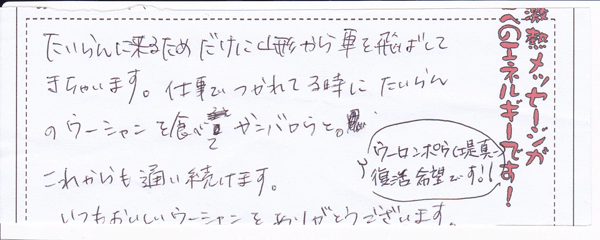 たいらんに来るためだけに山形から車を飛ばして
きちゃいます。仕事でつかれてる時にたいらん
のウーシャンを食べて ガンバロうと。
これからも通い続けます。
いつもおいしいウーシャンをありがとうございます。
ウーロンポウ(堤真一)
復活希望です!!
激熱メッセージが
へのエネルギーです!